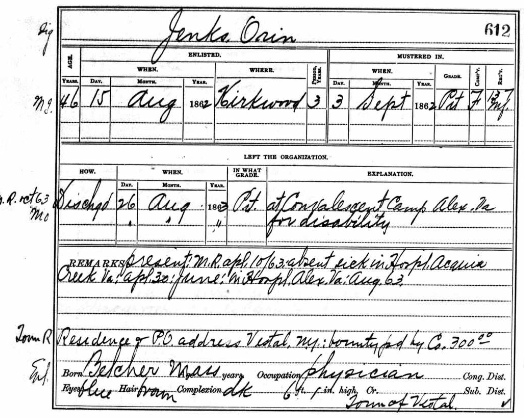 Dig
Jenks, Orin
612
AGE.
ENLISTED.
MUSTERED IN.
WHEN.
WHERE.
PERIOD, YEARS.
WHEN.
GRADE.
COMP'Y.
REG'T.
YEARS.
DAY.
MONTH.
YEAR.
DAY.
MONTH.
YEAR.
46 15 Aug 1862 Kirkwood 3 3 Sept 1862 Pvt F
LEFT THE ORGANIZATION.
HOW.
WHEN.
IN WHAT GRADE.
EXPLANATION.
DAY.
MONTH.
YEAR.
Dischgd 26 Aug 1863 Pvt. at Convalescent Camp Alex. Va
for disability
REMARKS present: M.R. apl. 10/63: absent sick in Hospl. Acquia
Creek Va: apl. 30: June: in Hospl. Alex. Va: Aug. 63.
Town R
Residence & P.O. address Vestal, N.Y.: bounty pd by Co. 300.00
Born Belcher Mass years, Occupation physician Cong. Dist.
Eyes blue Hair brown Complexion dk 6 ft. 1 in. high, Cr. Sub. Dist.
Town of Vestal